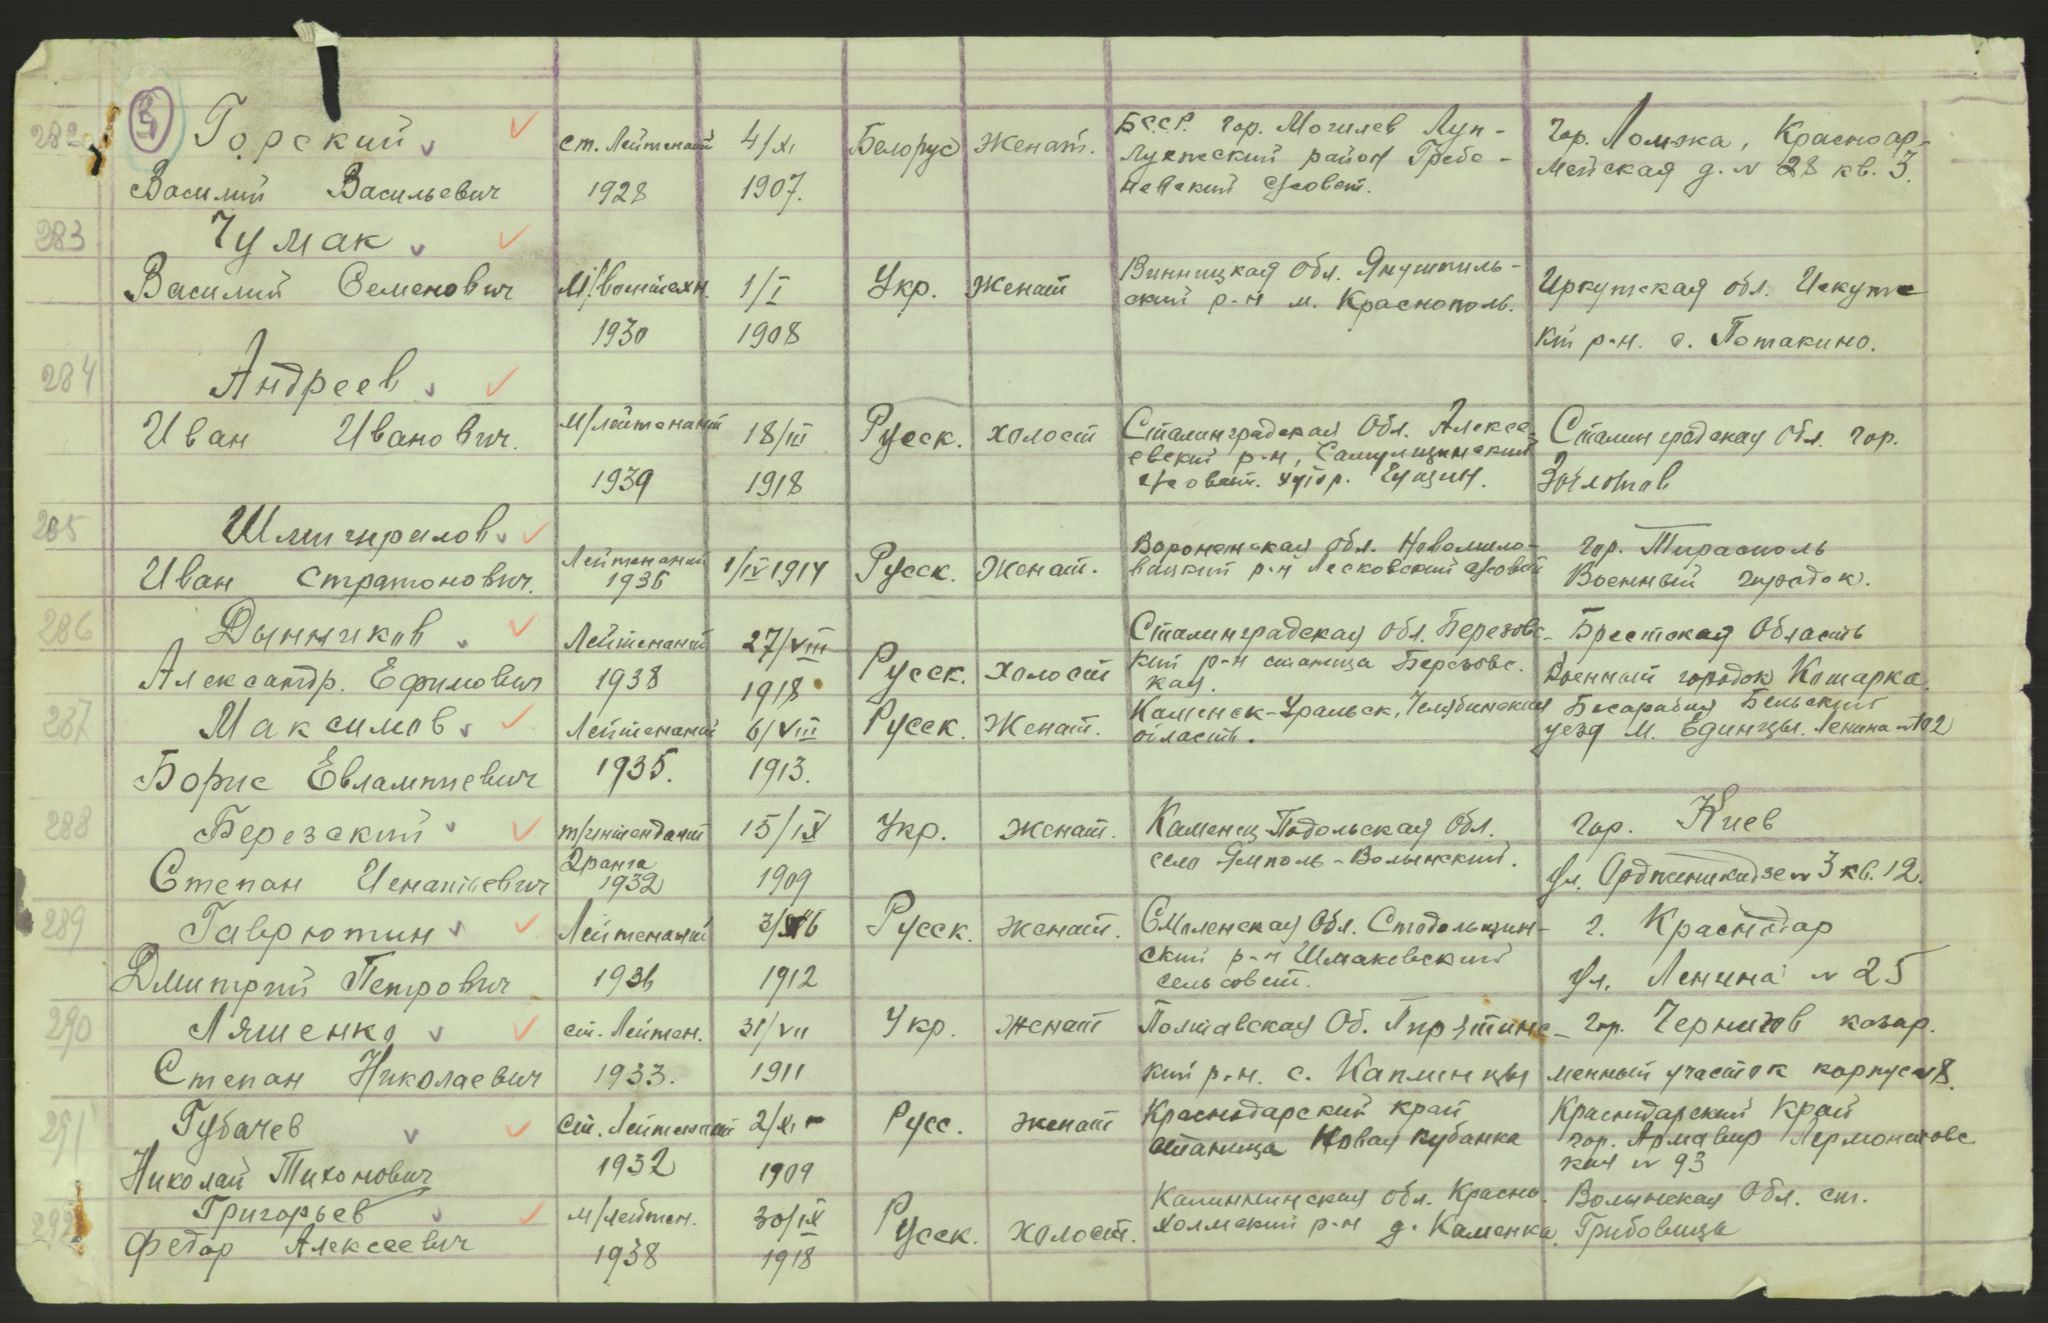 282 3 Горский ст. Лейтенант 4/XI Белорус Женат. БССР. гор. Могилев Луп- гор. Ломжа, Красноар-
Василий Васильевич 1928 1907. район Гребе- мейская д. № 28 кв. 3.
невский с/совет.
283 Чумак
Василий Семенович М/воентехн. 1/I Укр. Женат Винницкая Обл. Янушполь- Иркутская обл. Искутс
1930 1908 ский р-н м. Краснополь. кий р-н. с. Потакино.
284 Андреев
Иван Иванович. М/лейтенант 18/III Русск. холост Сталинградская Обл. Алексе- Сталинградская Обл. гор.
1939 1918 евский р-н, с/совет. хутор.
285 Шмигирилов
Иван Стратонович. Лейтенант 1936 1/IV 1914 Русск. Женат. Воронежская обл. р-н Лесковский с/совет гор. Тирасполь
Военный городок.
286 Дынников Лейтенант 27/VIII Сталинградская Обл. Березовс- Брестская Область
Александр. Ефимович 1938 1918 Русск. Холост кий р-н станица Березовс. Военный городок Кошарка.
кая.
287 Максимов Лейтенант 6/VIII Русск. Женат. Каменск-Уральск, Челябинская Бесарабия Бельский
область. уезд М. Единцы. Ленина № 102
Борис Евлампиевич 1935. 1913.
288 Березский т/интендант 15/IX Укр. Женат. Каменец-Подольская Обл. гор. Киев
Степан Игнатьевич 2 ранга 1932 1909 село Ямполь-Волынский. ул. Орджникидзе № 3 кв. 12.
289 Гаврютин Лейтенант Русск. Женат. Смоленская Обл. Стодолищин- г. Краснодар
Дмитрий Петрович 1936 1912 ский р-н Шмаковский ул. Ленина № 25
сельсовет.
290 Ляшенко ст. Лейтен. 31/VII Укр. Женат Полтавская Об. Пирятинс- гор. Чернигов казар.
Степан Николаевич 1933. 1911 кий р-н. с. Каплинцы менный участок корпус № 8.
291 Губачев ст. Лейтенант 2/XI Русс. Женат Краснодарский край Краснодарский Край
станица Новая Кубанка гор. Армавир Лермонтовс
Николай Тихонович 1932 1909 кая № 93
292 Григорьев м/лейтен. 30/IX Русск. Холост. Калининская обл. Красно. Волынская Обл. ст.
Федор Алексеевич 1938 1918 холмский р-н д. Каменка. Грибовица